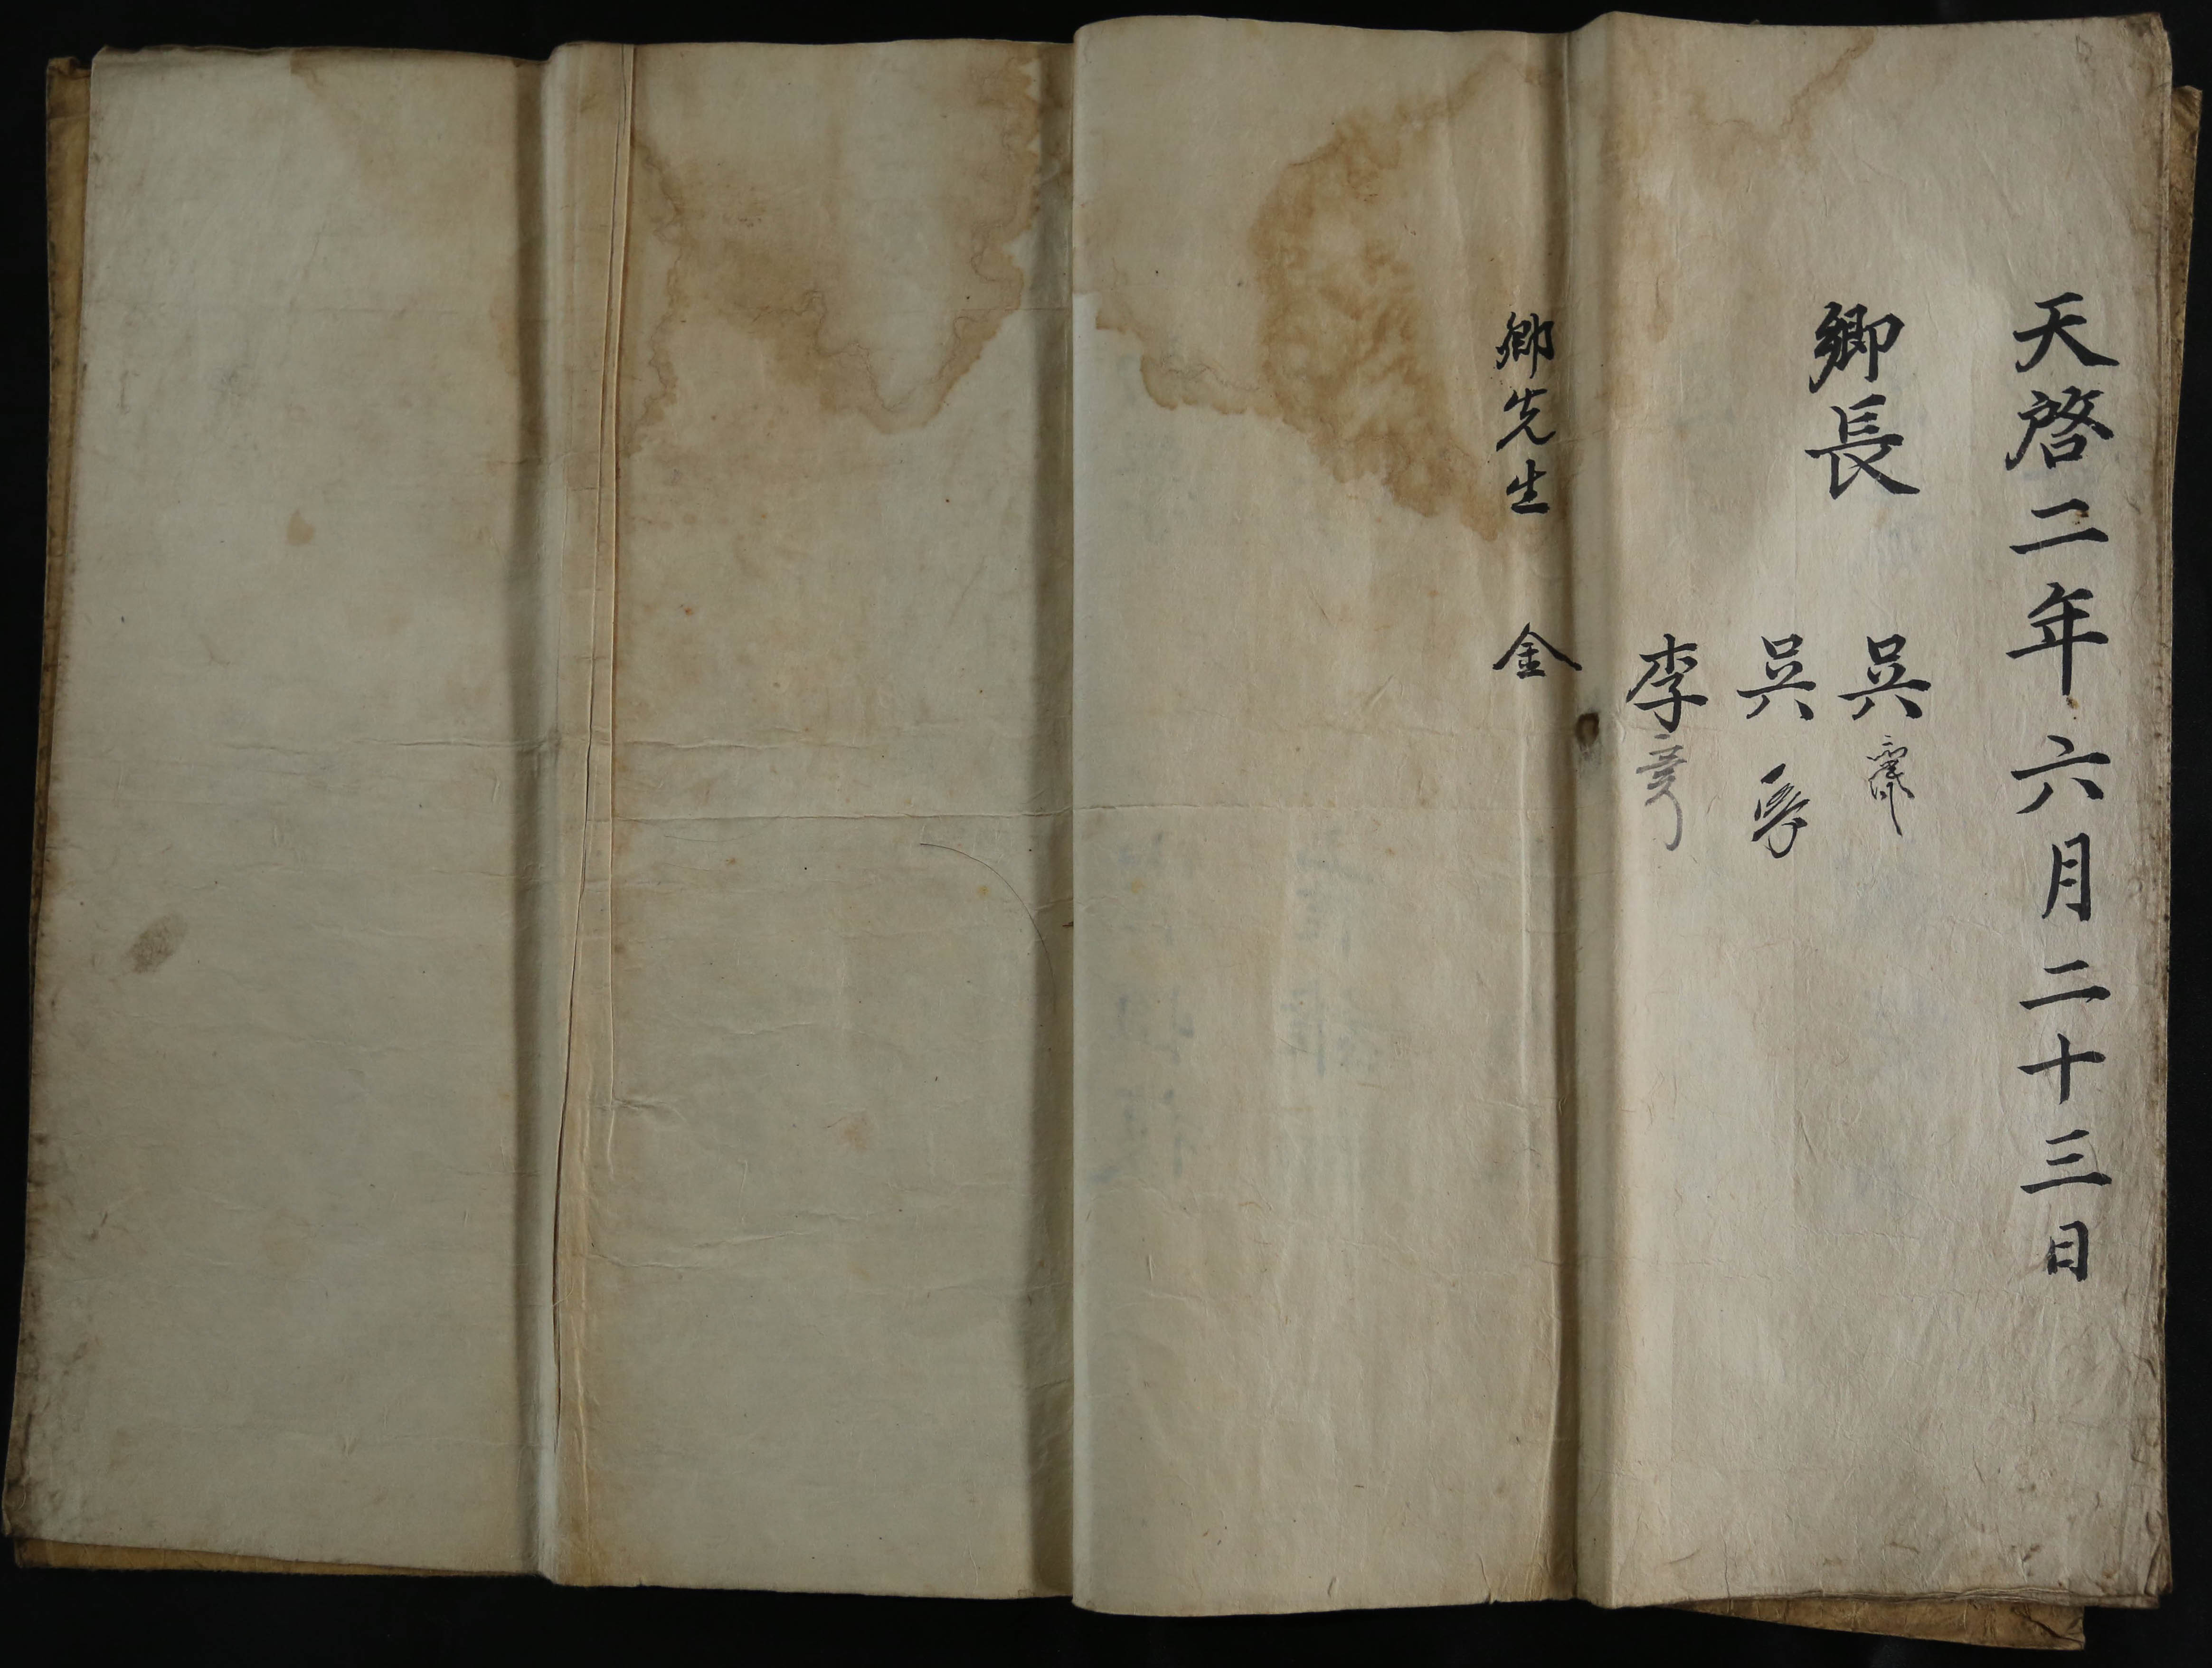 天啓二年六月二十三日
鄕長
吳
吳
李
鄕先生 金